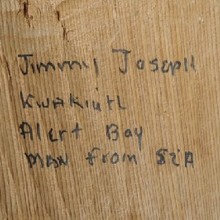 Jimmy Joseph
Kwakiutl
Alert Bay
MAN from SEA